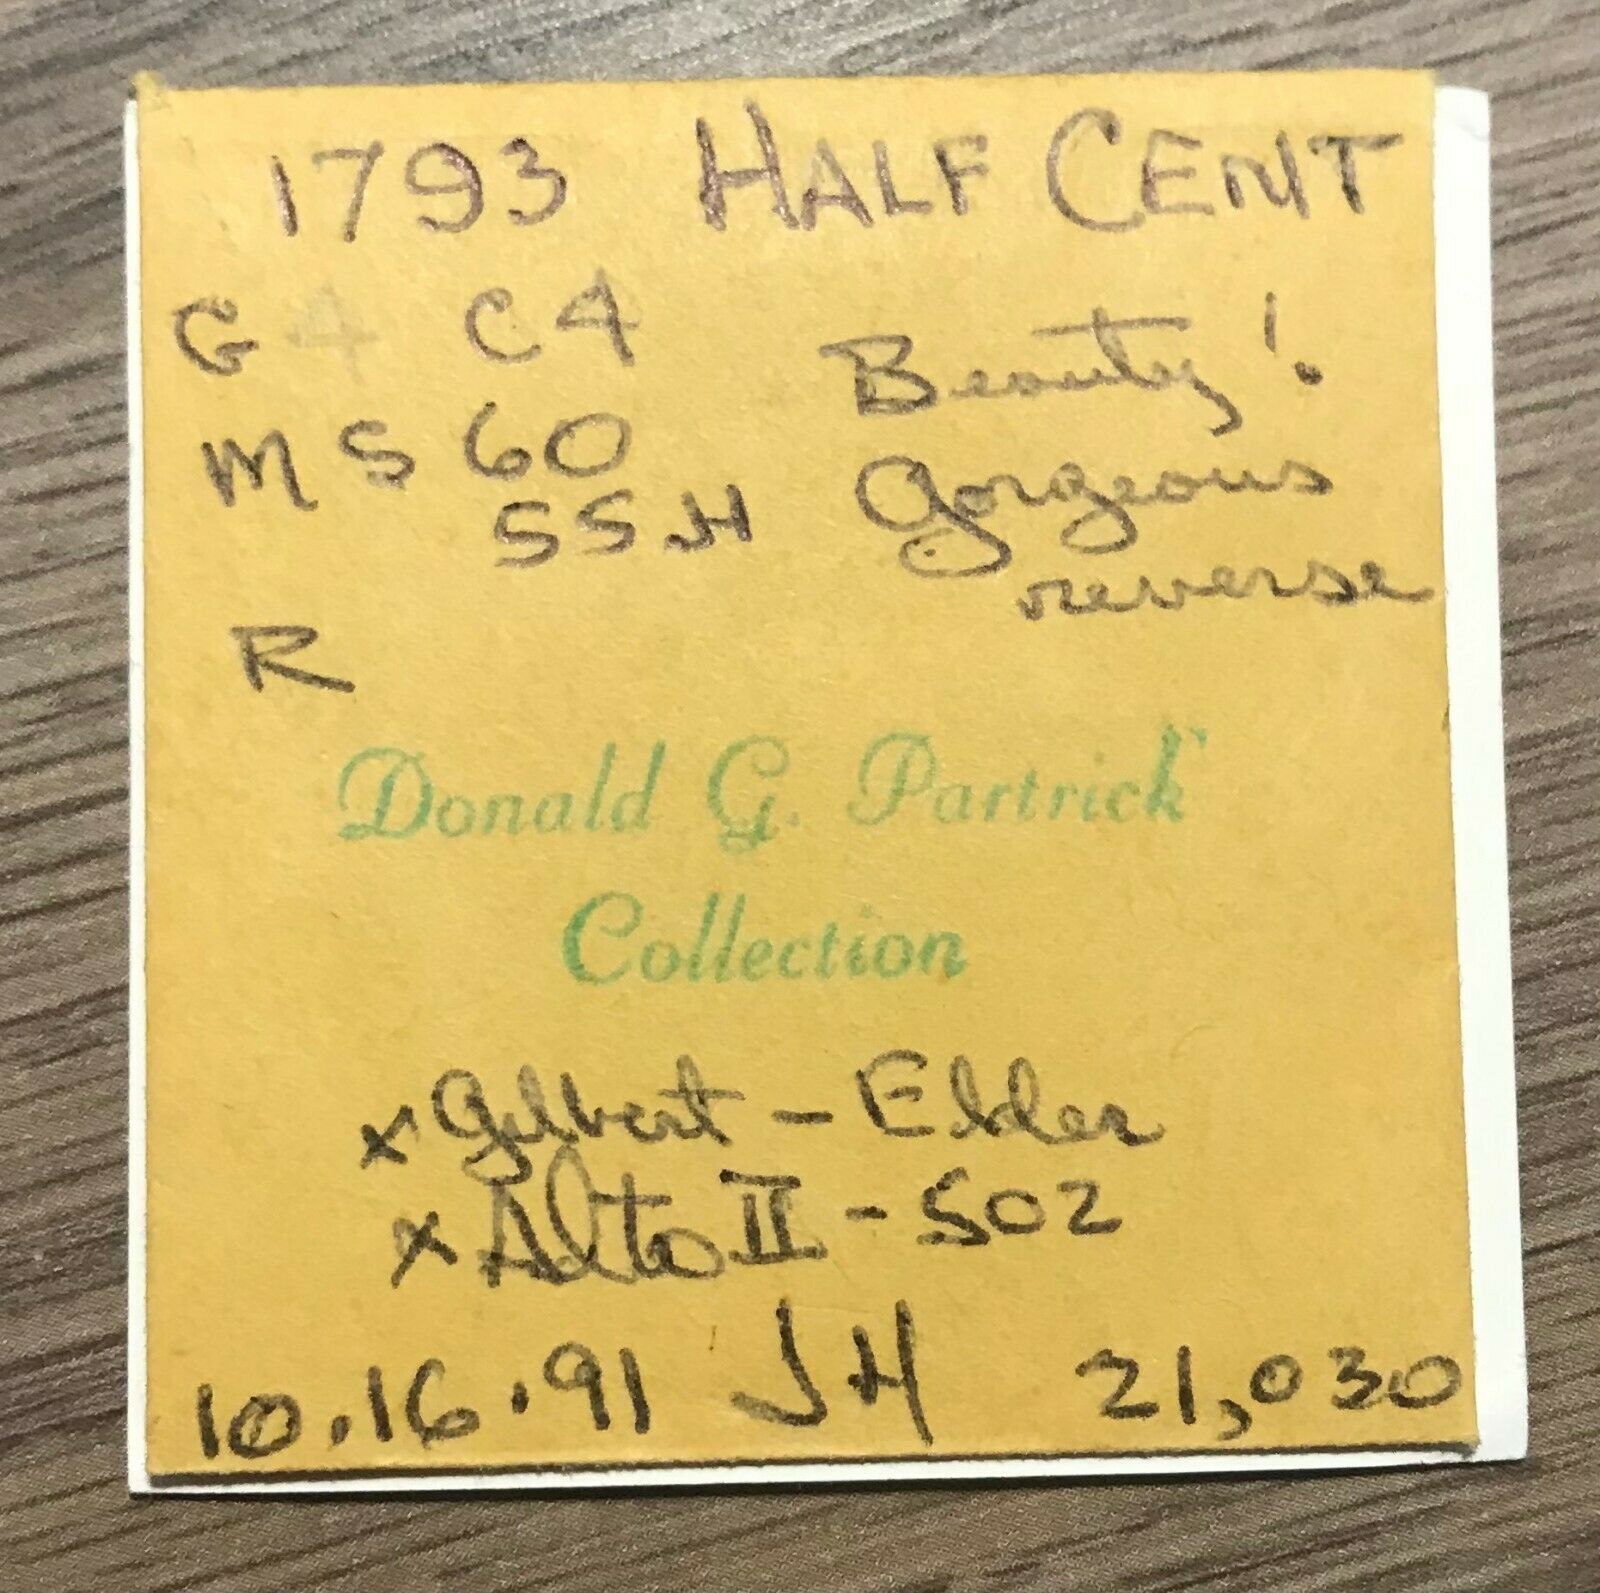 1793 HALF CENT
G 4 C4
MS 60
55 JH
Beauty!
Gorgeous
reverse
R
Donald G. Partrick
Collection
x Gilbert - Elder
x Alto II - 502
10.16.91 JH 21,030